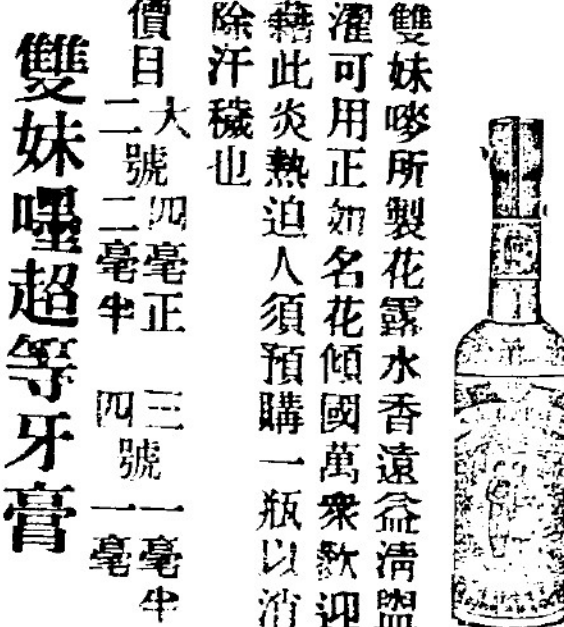 雙妹嘜所製花露水香遠益清盥
濯可用正如名花傾國萬衆歡迎
藉此炎熱迫人須預購一瓶以消
除汗穢也
價目
大二號
四毫正
二毫半
三四號
一毫半
一毫
雙妹嚜超等牙膏